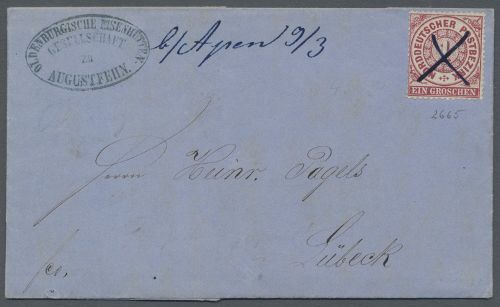 OLDENBURGISCHE EISENHÜTTEN
GESELLSCHAFT
ZU
AUGUSTFEHN.
b/Apen 9/3
NORDDEUTSCHER POSTBEZIRK
1
EIN GROSCHEN
2665
Herrn Heinr. Pagels
Lübeck